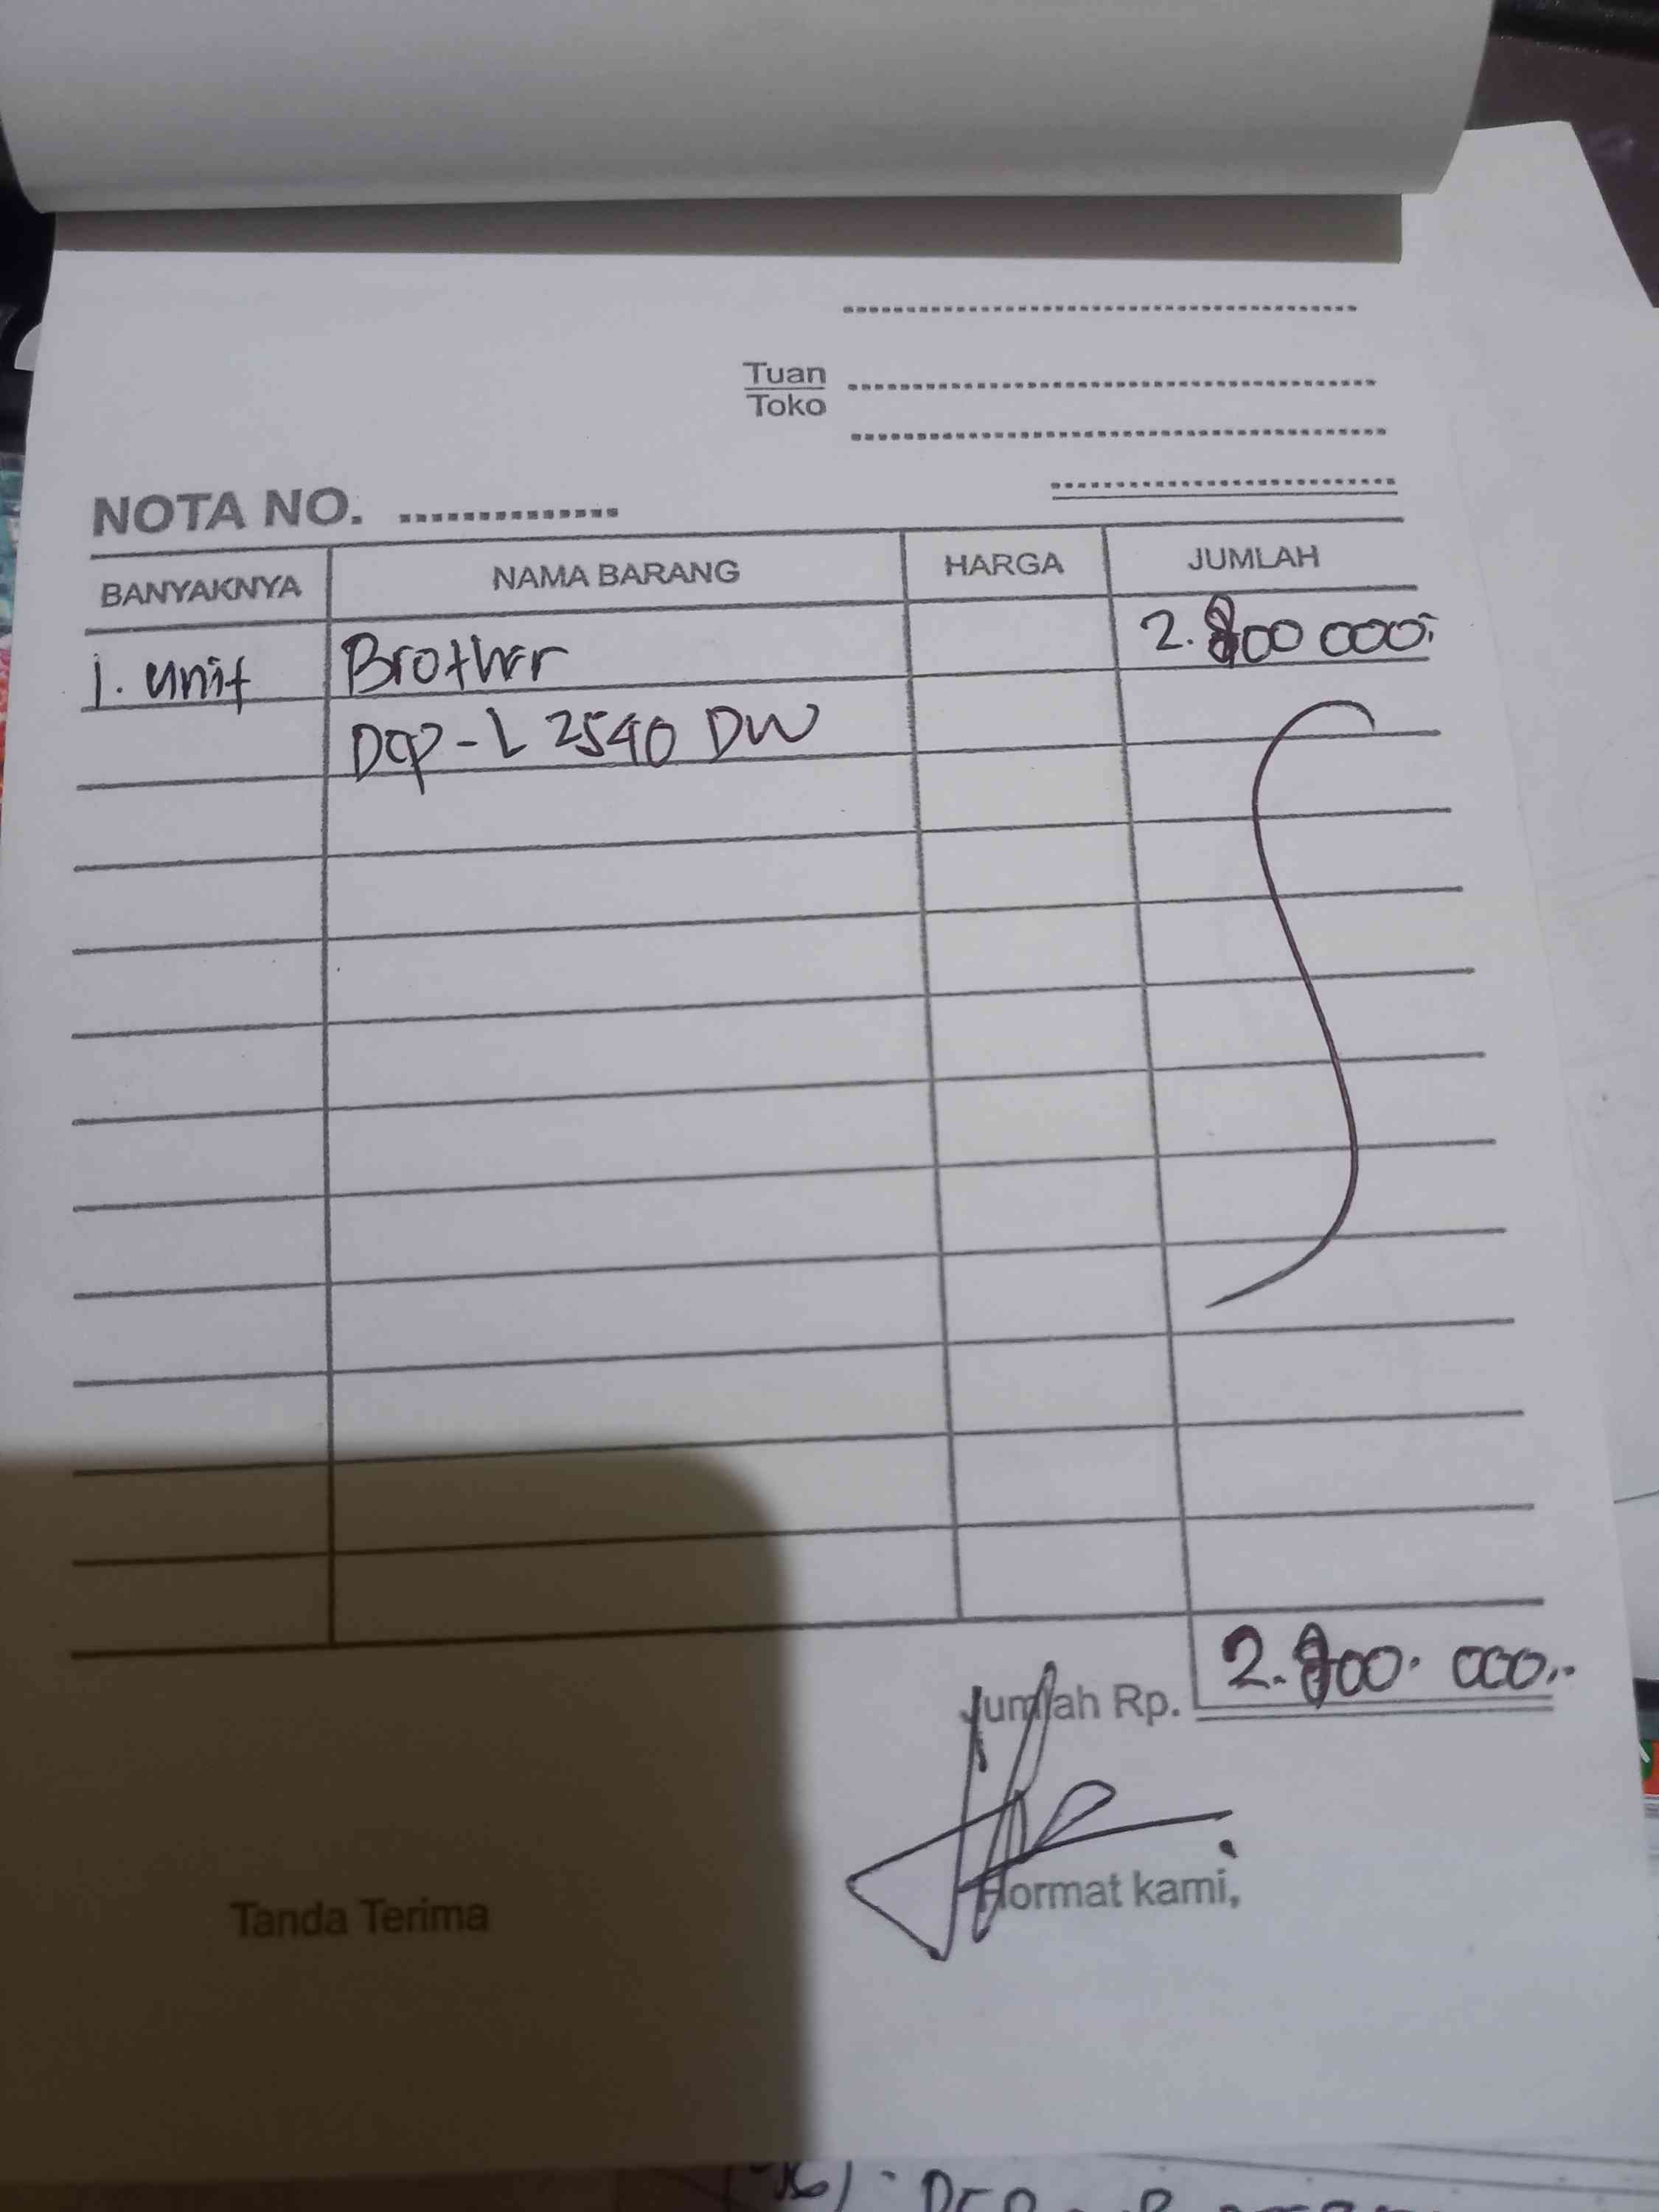 Tuan
Toko
NOTA NO.
BANYAKNYA NAMA BARANG HARGA JUMLAH
1. unit Brother 2.800 000.
DCP-L 2540 DW
Jumlah Rp. 2.800. 000..
Tanda Terima Hormat kami,